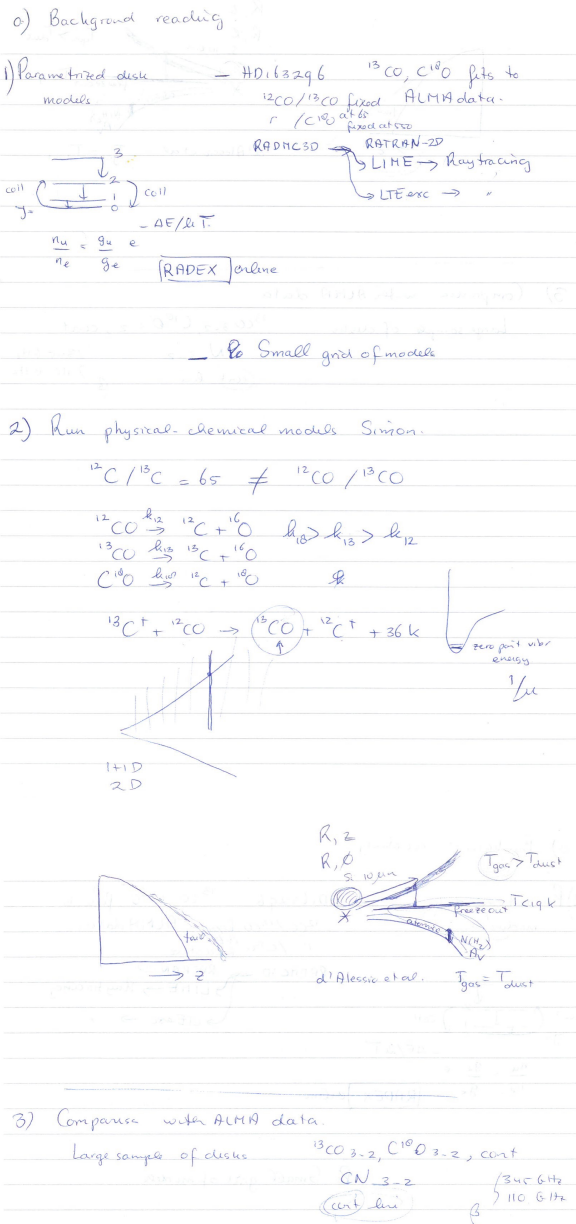 0) Background reading
1) Parametrized disk models
— HD163296 ¹³CO, C¹⁸O fits to ALMA data.
¹²CO/¹³CO fixed at 65
" /C¹⁸O fixed at 550
RADMC3D → RATRAN-2D
→ LIME → Raytracing
→ LTE exc → "
3
2
1
0
coll
coll
nᵤ/nₑ = gᵤ/gₑ e^(-ΔE/kT)
RADEX online
— Small grid of models
2) Run physical-chemical models Simon.
¹²C/¹³C = 65 ≠ ¹²CO/¹³CO
¹²CO →(k₁₂) ¹²C + ¹⁶O k₁₈ > k₁₃ > k₁₂
¹³CO →(k₁₃) ¹³C + ¹⁶O
C¹⁸O →(k₁₈) ¹²C + ¹⁸O
¹³C⁺ + ¹²CO → ¹³CO + ¹²C⁺ + 36 K
zero point vibr energy
1/μ
1+1D
2D
R, z
R, θ
Si 10 μm
Tgas > Tdust
freeze out T<19 K
N(H₂)
Aᵥ
d'Alessio et al. Tgas = Tdust
→ z
3) Comparison with ALMA data.
Large sample of disks ¹³CO 3-2, C¹⁸O 3-2, cont
CN 3-2
cont line
345 GHz
110 GHz
β